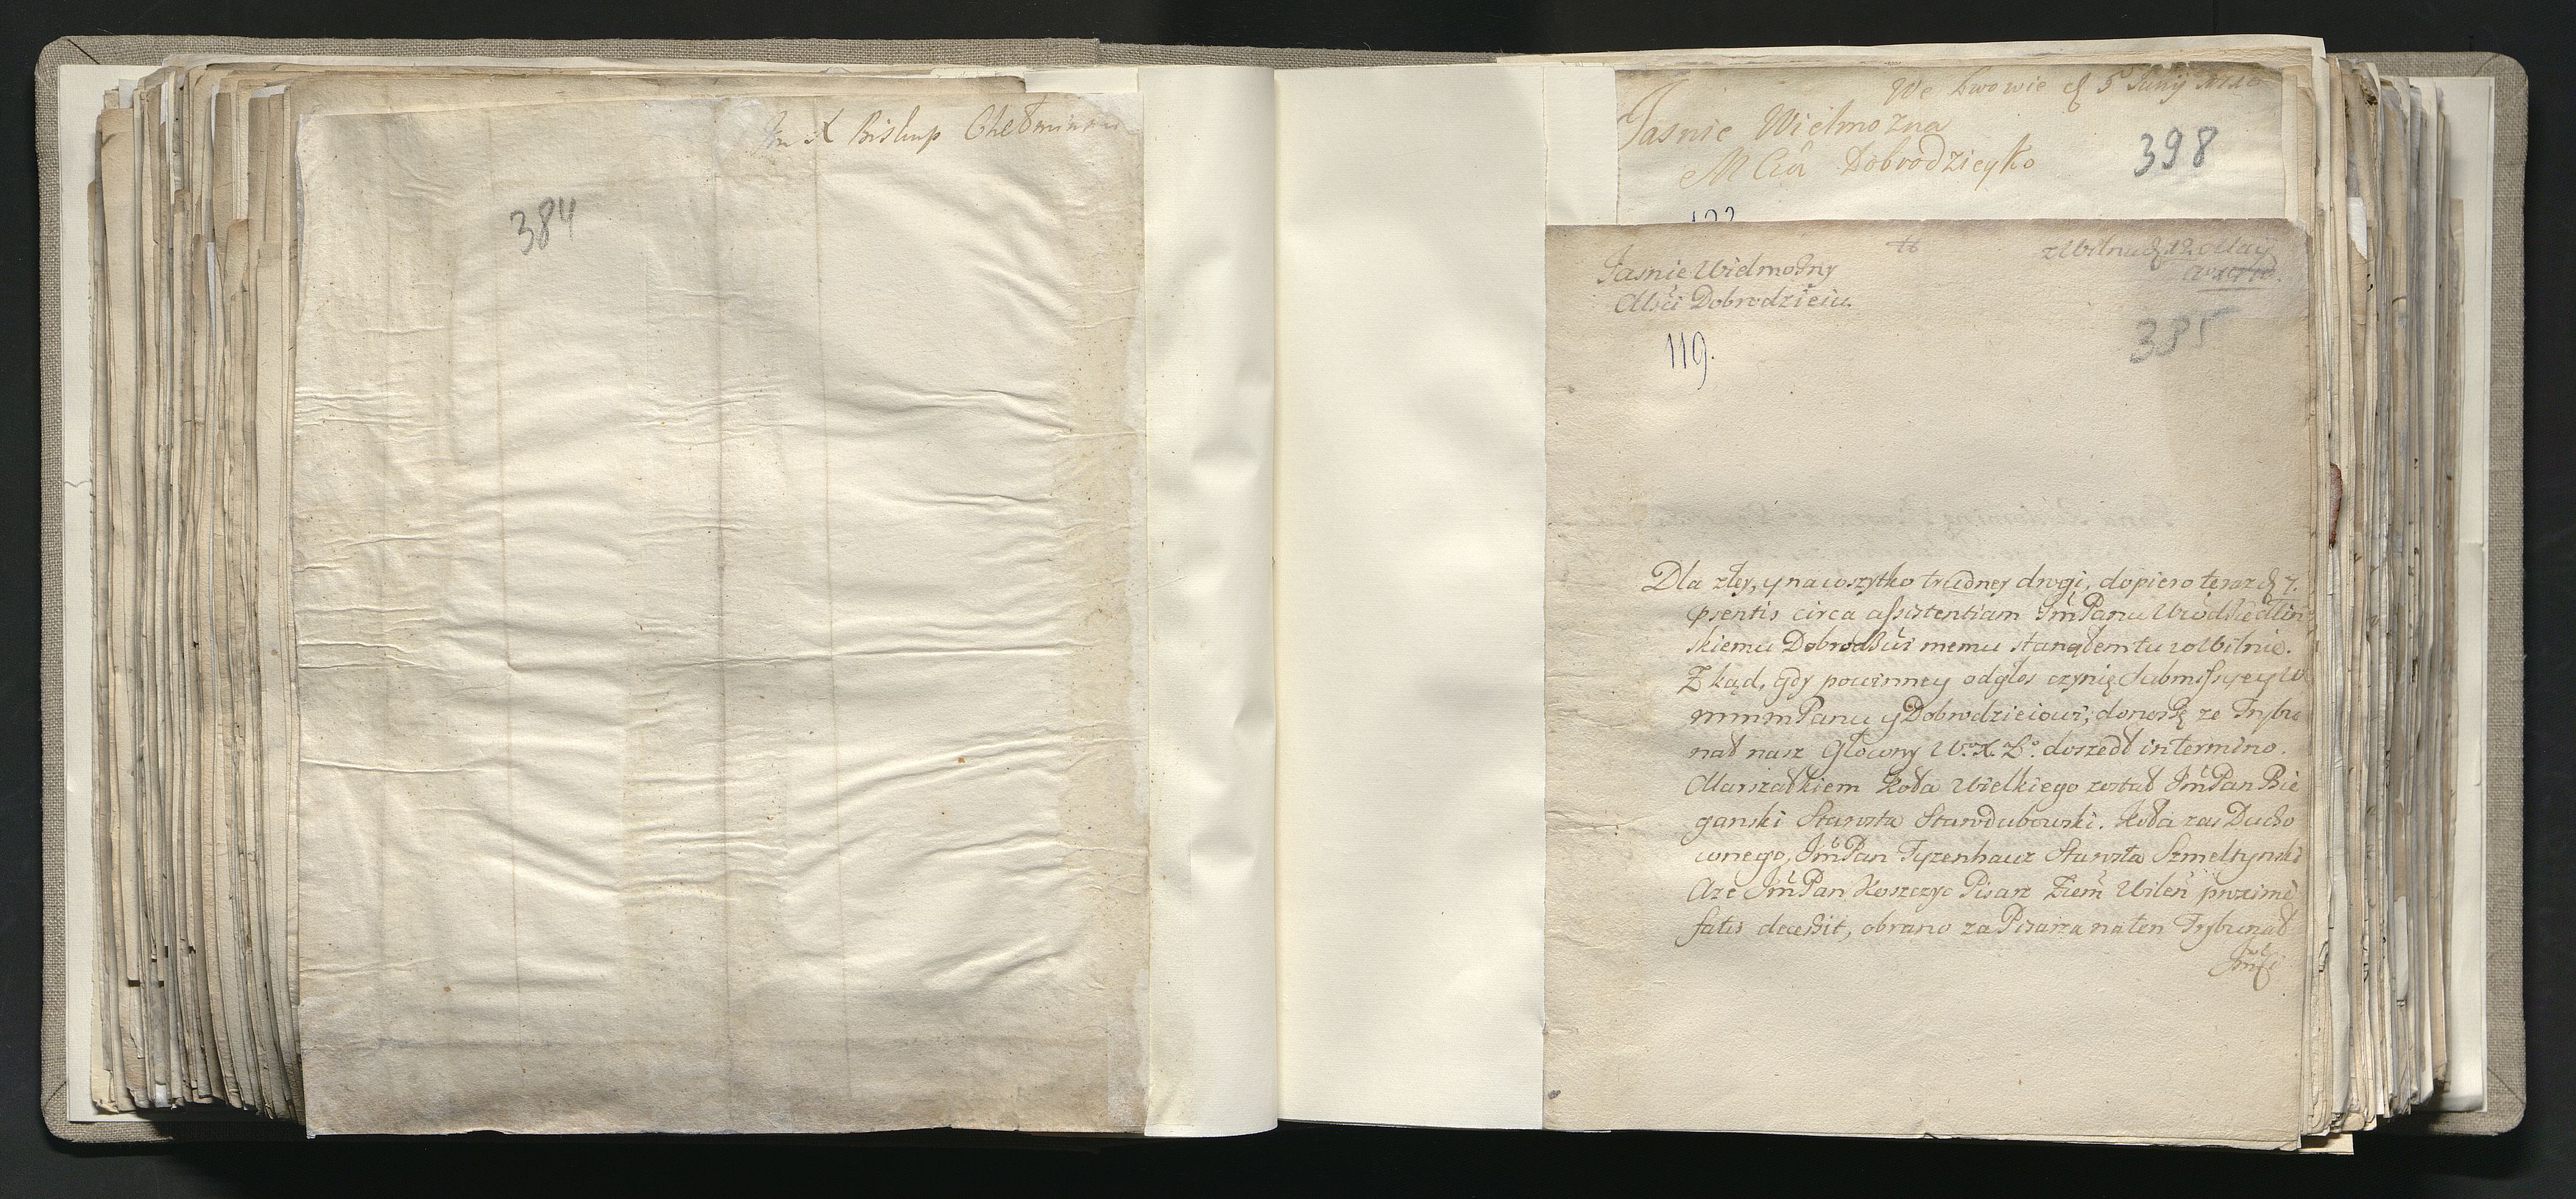 Jm X Biskup Chełmiński
384
We Lwowie d 5 Juny
Jasnie Wielmozna
M Cia Dobrodzieyko
398
Jasnie Wielmożny
Mści Dobrodzieiu
z Wilna d 12 May
119.
385
Dla złey, y na wszytko trudney drogi, dopiero teraz d 7.
psentis circa assistentiam Jm Panu
skiemu memu stanąłem tu w Wilnie.
Z kąd, gdy powinney odgłos czynię submissyey
Panu y Dobrodzieiowi, donoszę ze Trybu
nał nasz Głowny W. X. L. doszedł in termino.
Marszałkiem Koła Wielkiego został Jm Pan Bie
ganski Starosta Starodubowski. Koła zas Ducho
wnego, Jm Pan Tyzenhauz Starosta Szmeltynski
A ze Jm Pan Koszczyc Pisarz Ziem Wilen
fatis decessit, obrano za Pisarza na ten Trybunał